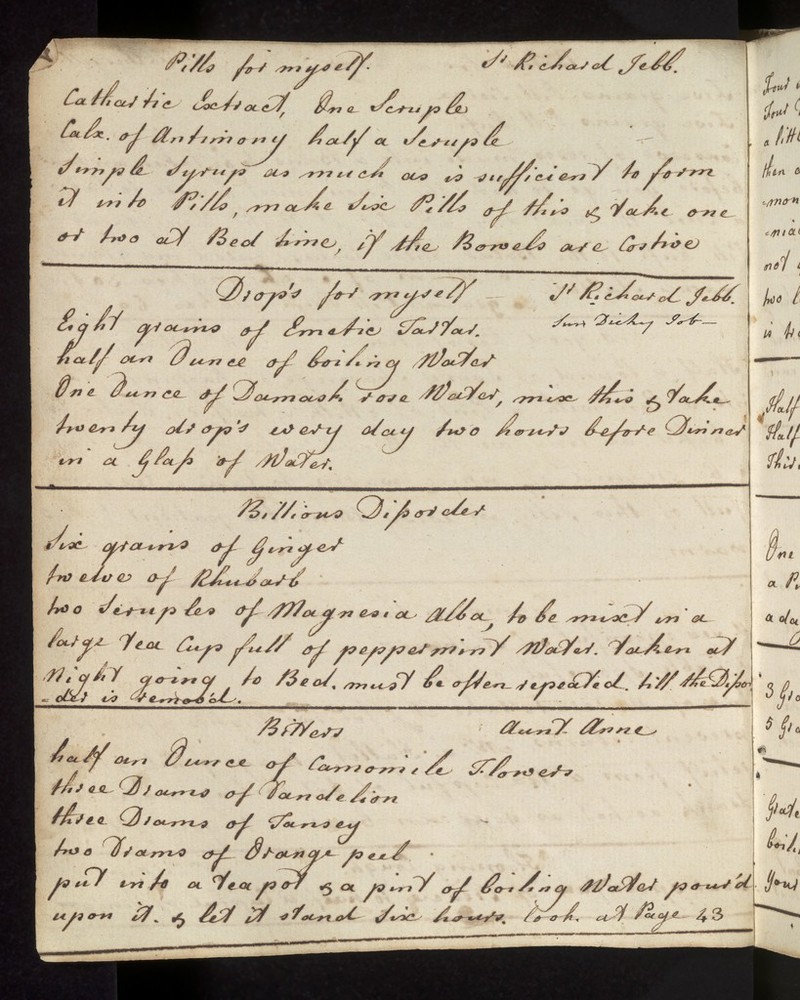 Pills for myself. Sr Richard Jebb.
Cathartic Extract, One Scruple
Calx. of Antimony half a Scruple
Simple Syrup as much as is sufficient to form
it into Pills, make Six Pills of this & take one
or two at Bed time, if the Bowels are Costive
Drop's for myself — Sr Richard Jebb.
Eight grains of Emetic Tartar. Dicky Job —
half an Ounce of boiling Water
One Ounce of Damask rose Water, mix this & take
twenty drop's every day two hours before Dinner
in a Glaſs of Water.
Billious Diſsorder
Six grains of Ginger
twelve of Rhubarb
two Scruples of Magnesia Alba, to be mixt in a
large tea Cup full of peppermint Water. taken at
Night going to Bed. must be often repeated. till the Diſsor
-der is remoov'd.
Bitters Aunt Anne
half an Ounce of Camomile Flowers
three Drams of Dandelion
three Drams of Tansey
two Drams of Orange peel
put into a tea pot & a pint of boiling Water pour'd
upon it. & let it stand Six hours. look. at Page 43
Four
Four
a litt
then
=mon
=nia
not
two
is
Half
Half
Thir
One
a
a da
3 Gra
5 Gra
Grate
boil
Your